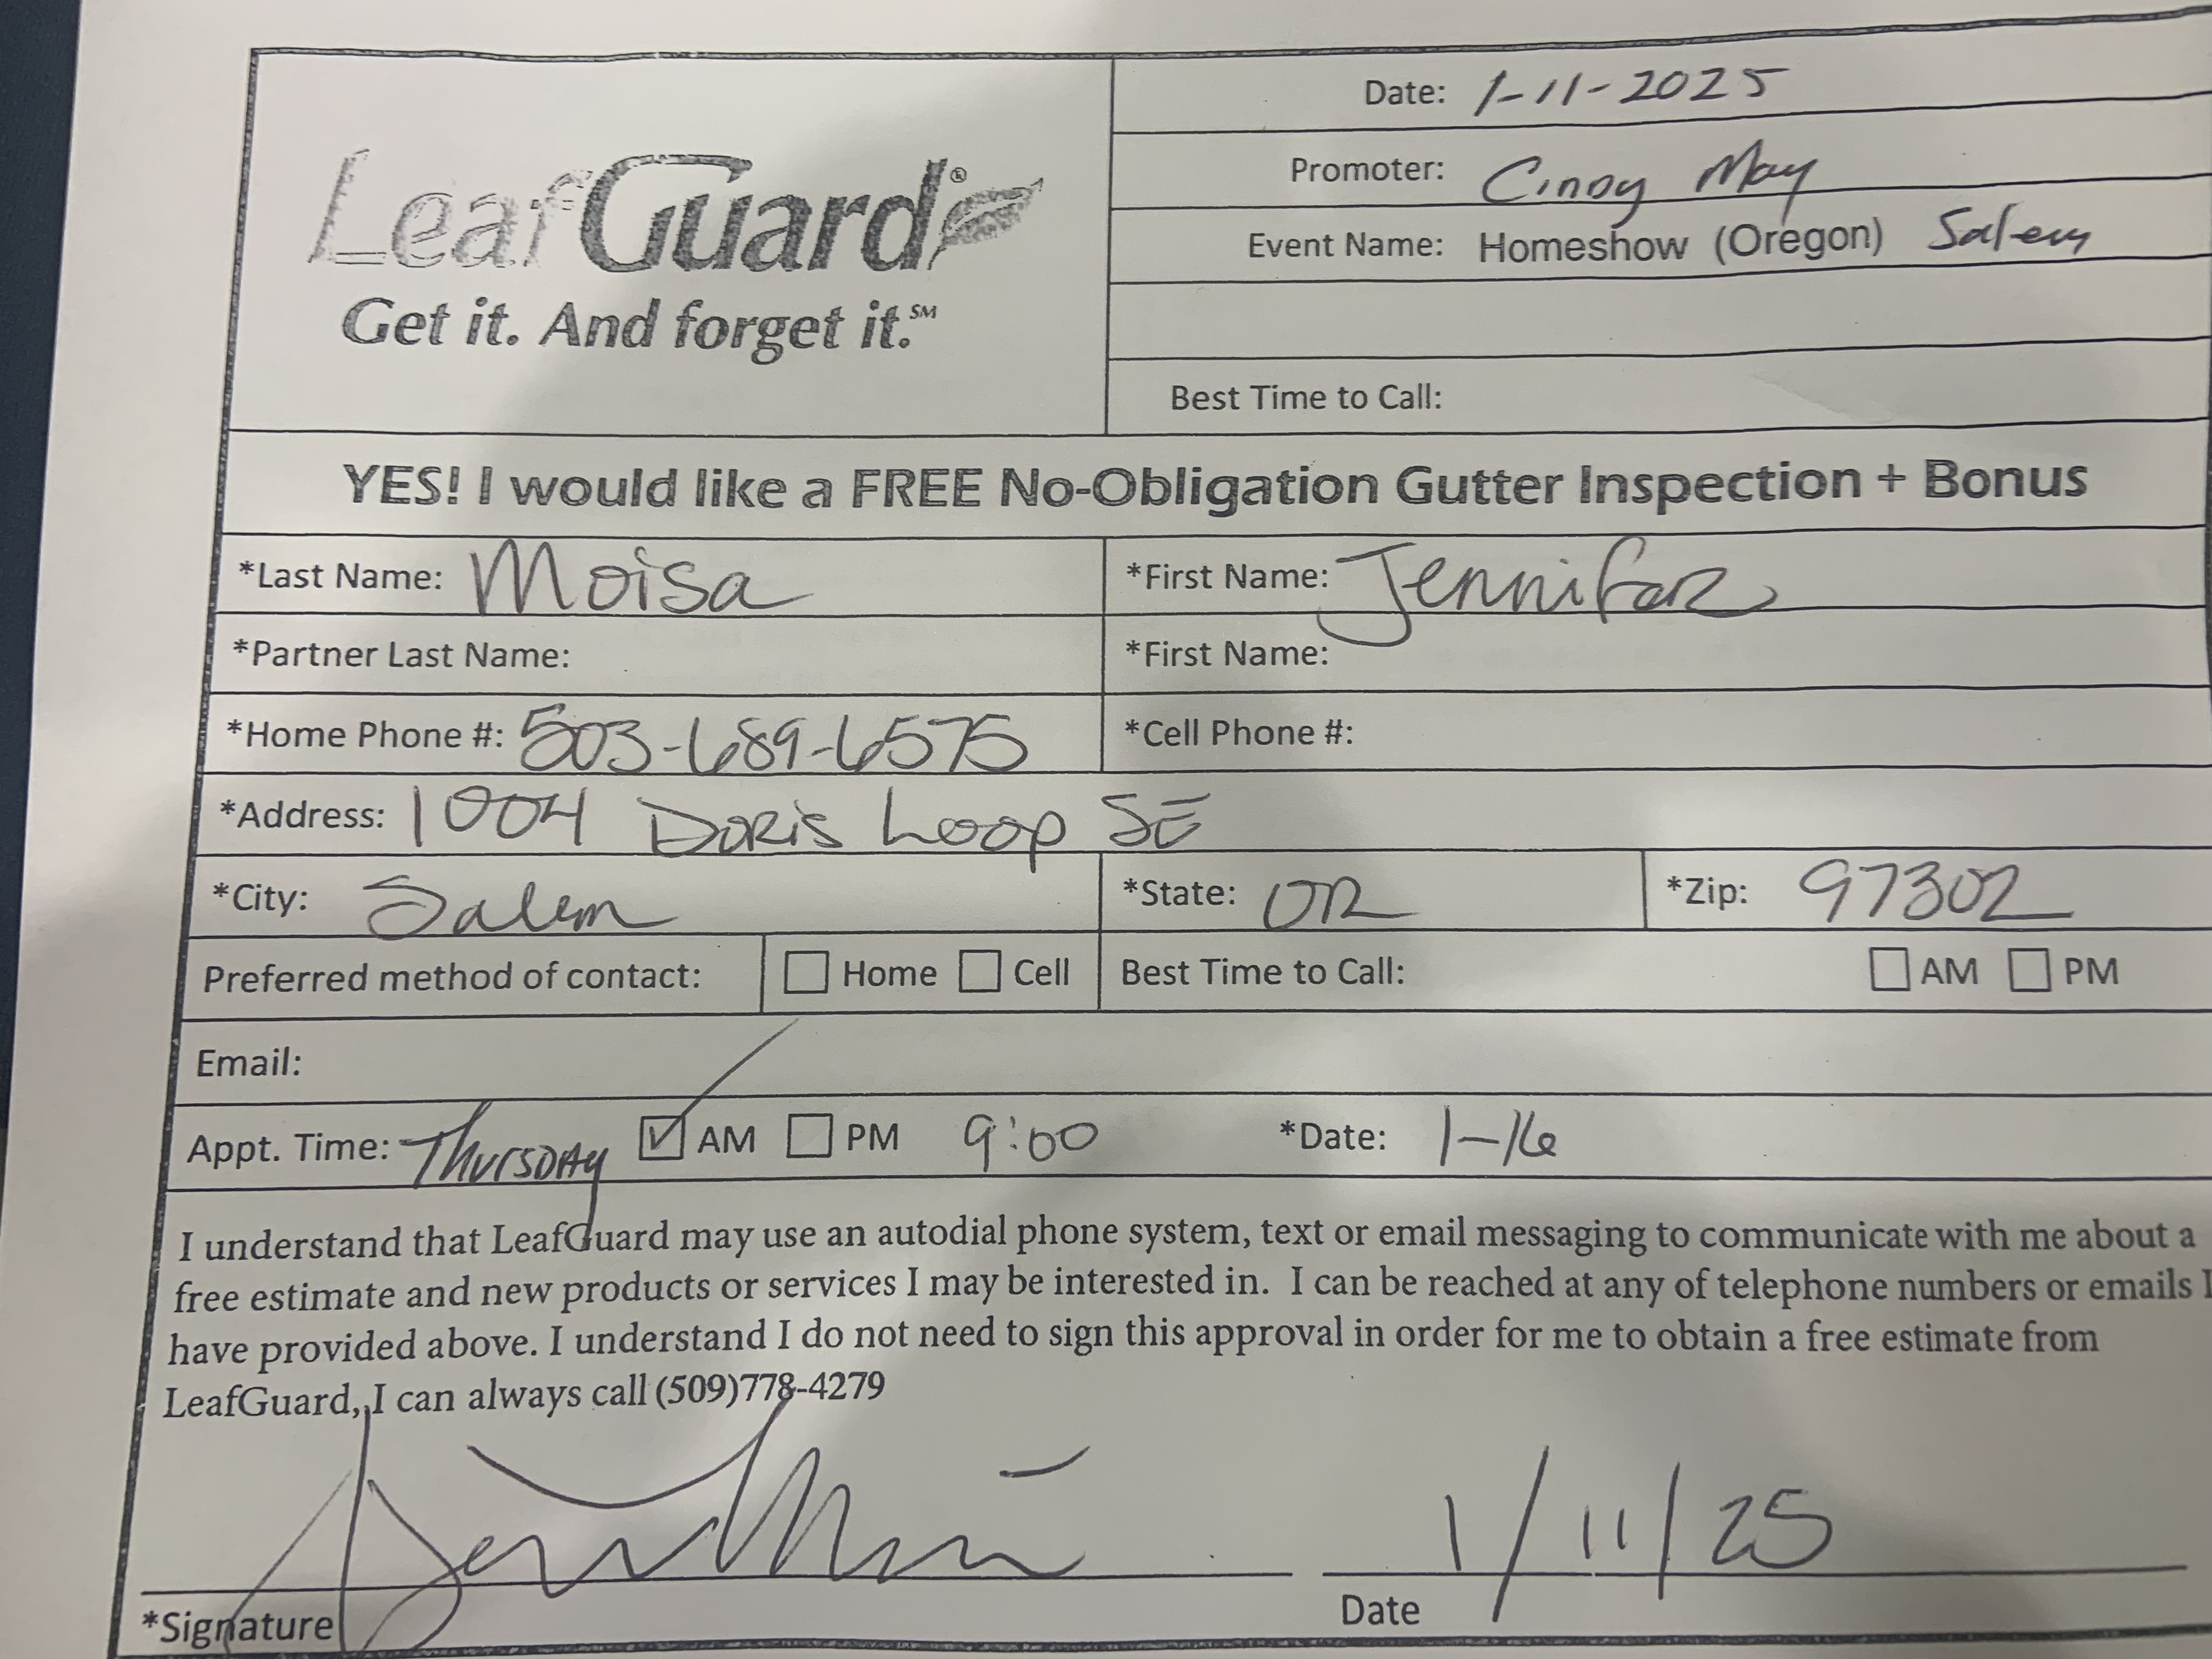 LeafGuard®
Get it. And forget it.℠
Date: 1-11-2025
Promoter: Cindy May
Event Name: Homeshow (Oregon) Salem
Best Time to Call:
YES! I would like a FREE No-Obligation Gutter Inspection + Bonus
*Last Name: Moisa *First Name: Jennifer
*Partner Last Name: *First Name:
*Home Phone #: 503-689-6575 *Cell Phone #:
*Address: 1004 Doris Loop SE
*City: Salem *State: OR *Zip: 97302
Preferred method of contact: ☐ Home ☐ Cell Best Time to Call: ☐ AM ☐ PM
Email:
Appt. Time: Thursday ☑ AM ☐ PM 9:00 *Date: 1-16
I understand that LeafGuard may use an autodial phone system, text or email messaging to communicate with me about a
free estimate and new products or services I may be interested in. I can be reached at any of telephone numbers or emails I
have provided above. I understand I do not need to sign this approval in order for me to obtain a free estimate from
LeafGuard,,I can always call (509)778-4279
1/11/25
*Signature Date